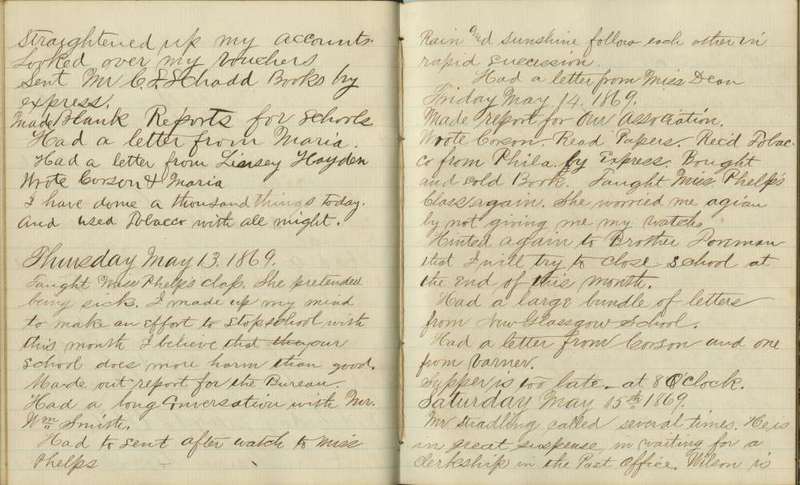 Straightened up my accounts.
Looked over my vouchers
Sent Mr C. S. Schadd Books by
express.
Made Blank Reports for schools
Had a letter from Maria.
Had a letter from Linsey Hayden
Wrote Corson & Maria
I have done a thousand things today.
And used Tobacco with all might.
Thursday May 13. 1869.
Taught Miss Phelps class. She pretended
being sick. I made up my mind
to make an effort to stop school with
this month I believe that our
school does more harm than good.
Made out report for the Bureau.
Had a long conversation with Mr.
Wm Smith.
Had to sent after watch to Miss
Phelps
Rain and sunshine follow each other in
rapid sucession.
Had a letter from Miss Dean
Friday May 14. 1869.
Made report for Our Association.
Wrote Corson. Read Papers. Rec'd Tobac-
co from Phila. by Express. Bought
and sold Book. Taught Miss Phelp's
Class again. She worried me agian
by not giving me my watch.
Hinted again to Brother Foreman
that I will try to close school at
the end of this month.
Had a large bundle of letters
from New Glassgow School.
Had a letter from Corson and one
from Varner.
Supper is too late. at 8 O'Clock.
Saturday May 15th 1869.
Mr Stradling called several times. He is
in great suspense, in waiting for a
clerkship in the Post Office. Wilson is